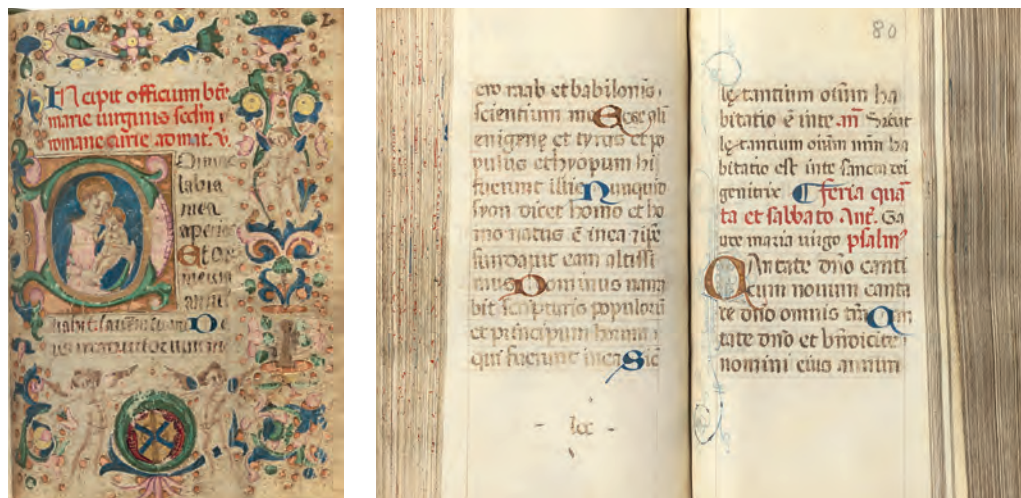 Incipit officium bte
marie virginis scdm
romane curie ad mat. v.
Domine
labia
mea
aperi
Et os
meum
annu
ero raab et babilonis,
scientium me Ecce ali
enigene et tyrus et po
pulus ethyopum hii
fuerunt illic Nunquid
syon dicet homo et ho
mo natus ē in ea
fundavit eam altissi
mus Dominus narra
bit scripturis populorū
et principum
qui fuerunt in ea Sic
lxx
80
le tantium oīum ha
bitatio ē in te añ Sicut
le tantium oīum nrm ha
bitatio est in te sancta dei
genitrix feria quar
ta et sabbato Ant. Ga
ude maria virgo psalm
Cantate dño canti
cum novum canta
te dño omnis tra Can
tate dño et bndicite
nomini eius annun